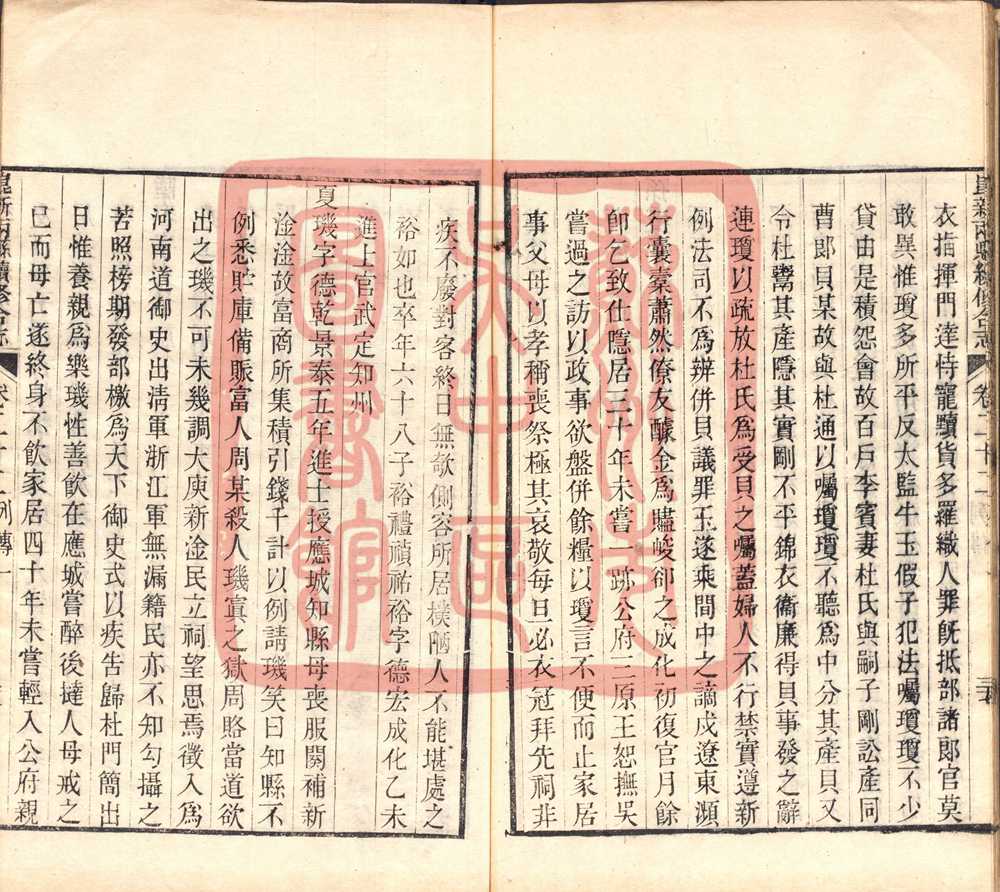 衣指揮門達恃寵黷貨多羅織人罪旣抵部諸郎官莫
敢異惟瓊多所平反太監牛玉假子犯法囑瓊瓊不少
貸由是積怨會故百戶李賓妻杜氏與嗣子剛訟產同
曹郎貝某故與杜通以囑瓊瓊不聽爲中分其產貝又
令杜鬻其產隱其實剛不平錦衣衞廉得貝事發之辭
連瓊以疏放杜氏爲受貝之囑蓋婦人不行禁實遵新
例法司不爲辨併貝議罪玉遂乘間中之謫戍遼東瀕
行囊橐蕭然僚友醵金爲贐峻卻之成化初復官月餘
卽乞致仕隱居三十年未嘗一跡公府三原王恕撫吳
嘗過之訪以政事欲盤併餘糧以瓊言不便而止家居
事父母以孝稱喪祭極其哀敬每旦必衣冠拜先祠非
疾不廢對客終日無欹側容所居樸陋人不能堪處之
裕如也卒年六十八子裕禮禎祐裕字德宏成化乙未
進士官武定知州
夏璣字德乾景泰五年進士授應城知縣母喪服闋補新
淦淦故富商所集積引錢千計以例請璣笑曰知縣不
例悉貯庫備賑富人周某殺人璣寘之獄周賂當道欲
出之璣不可未幾調大庾新淦民立祠望思焉徵入爲
河南道御史出淸軍浙江軍無漏籍民亦不知勾攝之
苦照榜期發部檄爲天下御史式以疾告歸杜門簡出
日惟養親爲樂璣性善飲在應城嘗醉後撻人母戒之
已而母亡遂終身不飲家居四十年未嘗輕入公府親